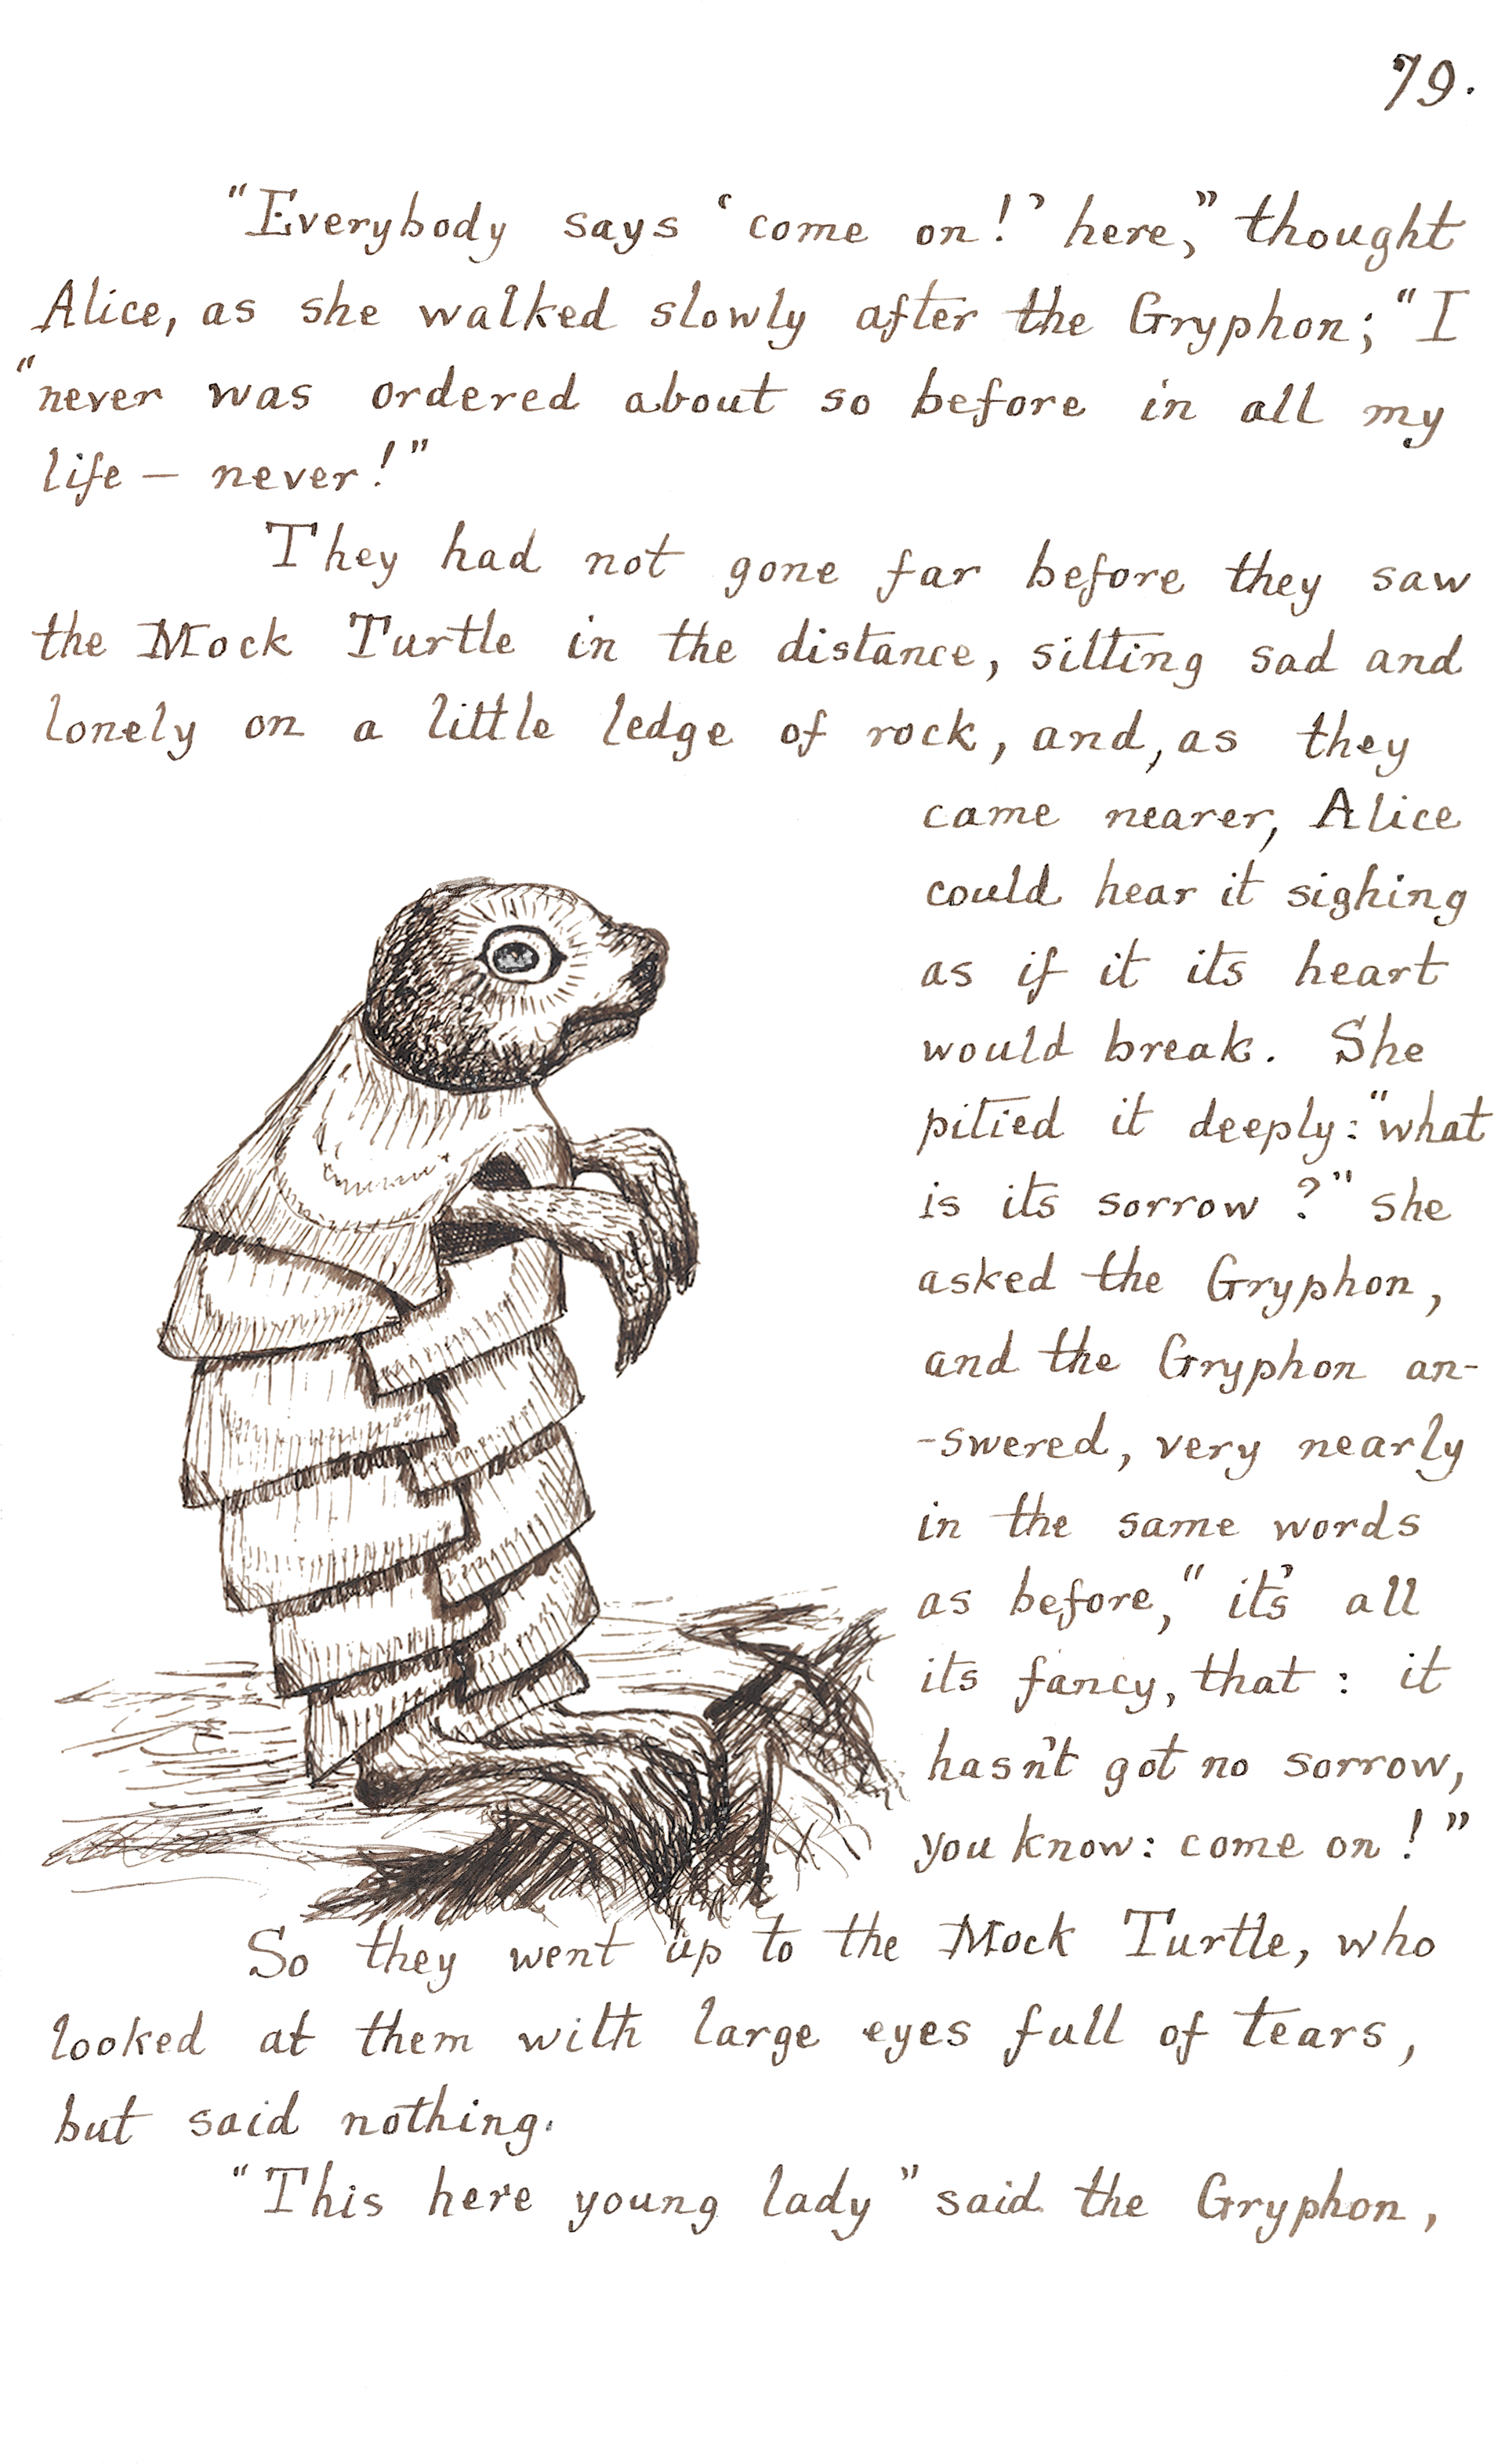 79.
"Everybody says 'come on!' here," thought
Alice, as she walked slowly after the Gryphon; "I
"never was ordered about so before in all my
life — never!"
They had not gone far before they saw
the Mock Turtle in the distance, sitting sad and
lonely on a little ledge of rock, and, as they
came nearer, Alice
could hear it sighing
as if it its heart
would break. She
pitied it deeply: "what
is its sorrow?" she
asked the Gryphon,
and the Gryphon an-
-swered, very nearly
in the same words
as before, "it's all
its fancy, that: it
hasn't got no sorrow,
you know: come on!"
So they went up to the Mock Turtle, who
looked at them with large eyes full of tears,
but said nothing.
"This here young lady" said the Gryphon,